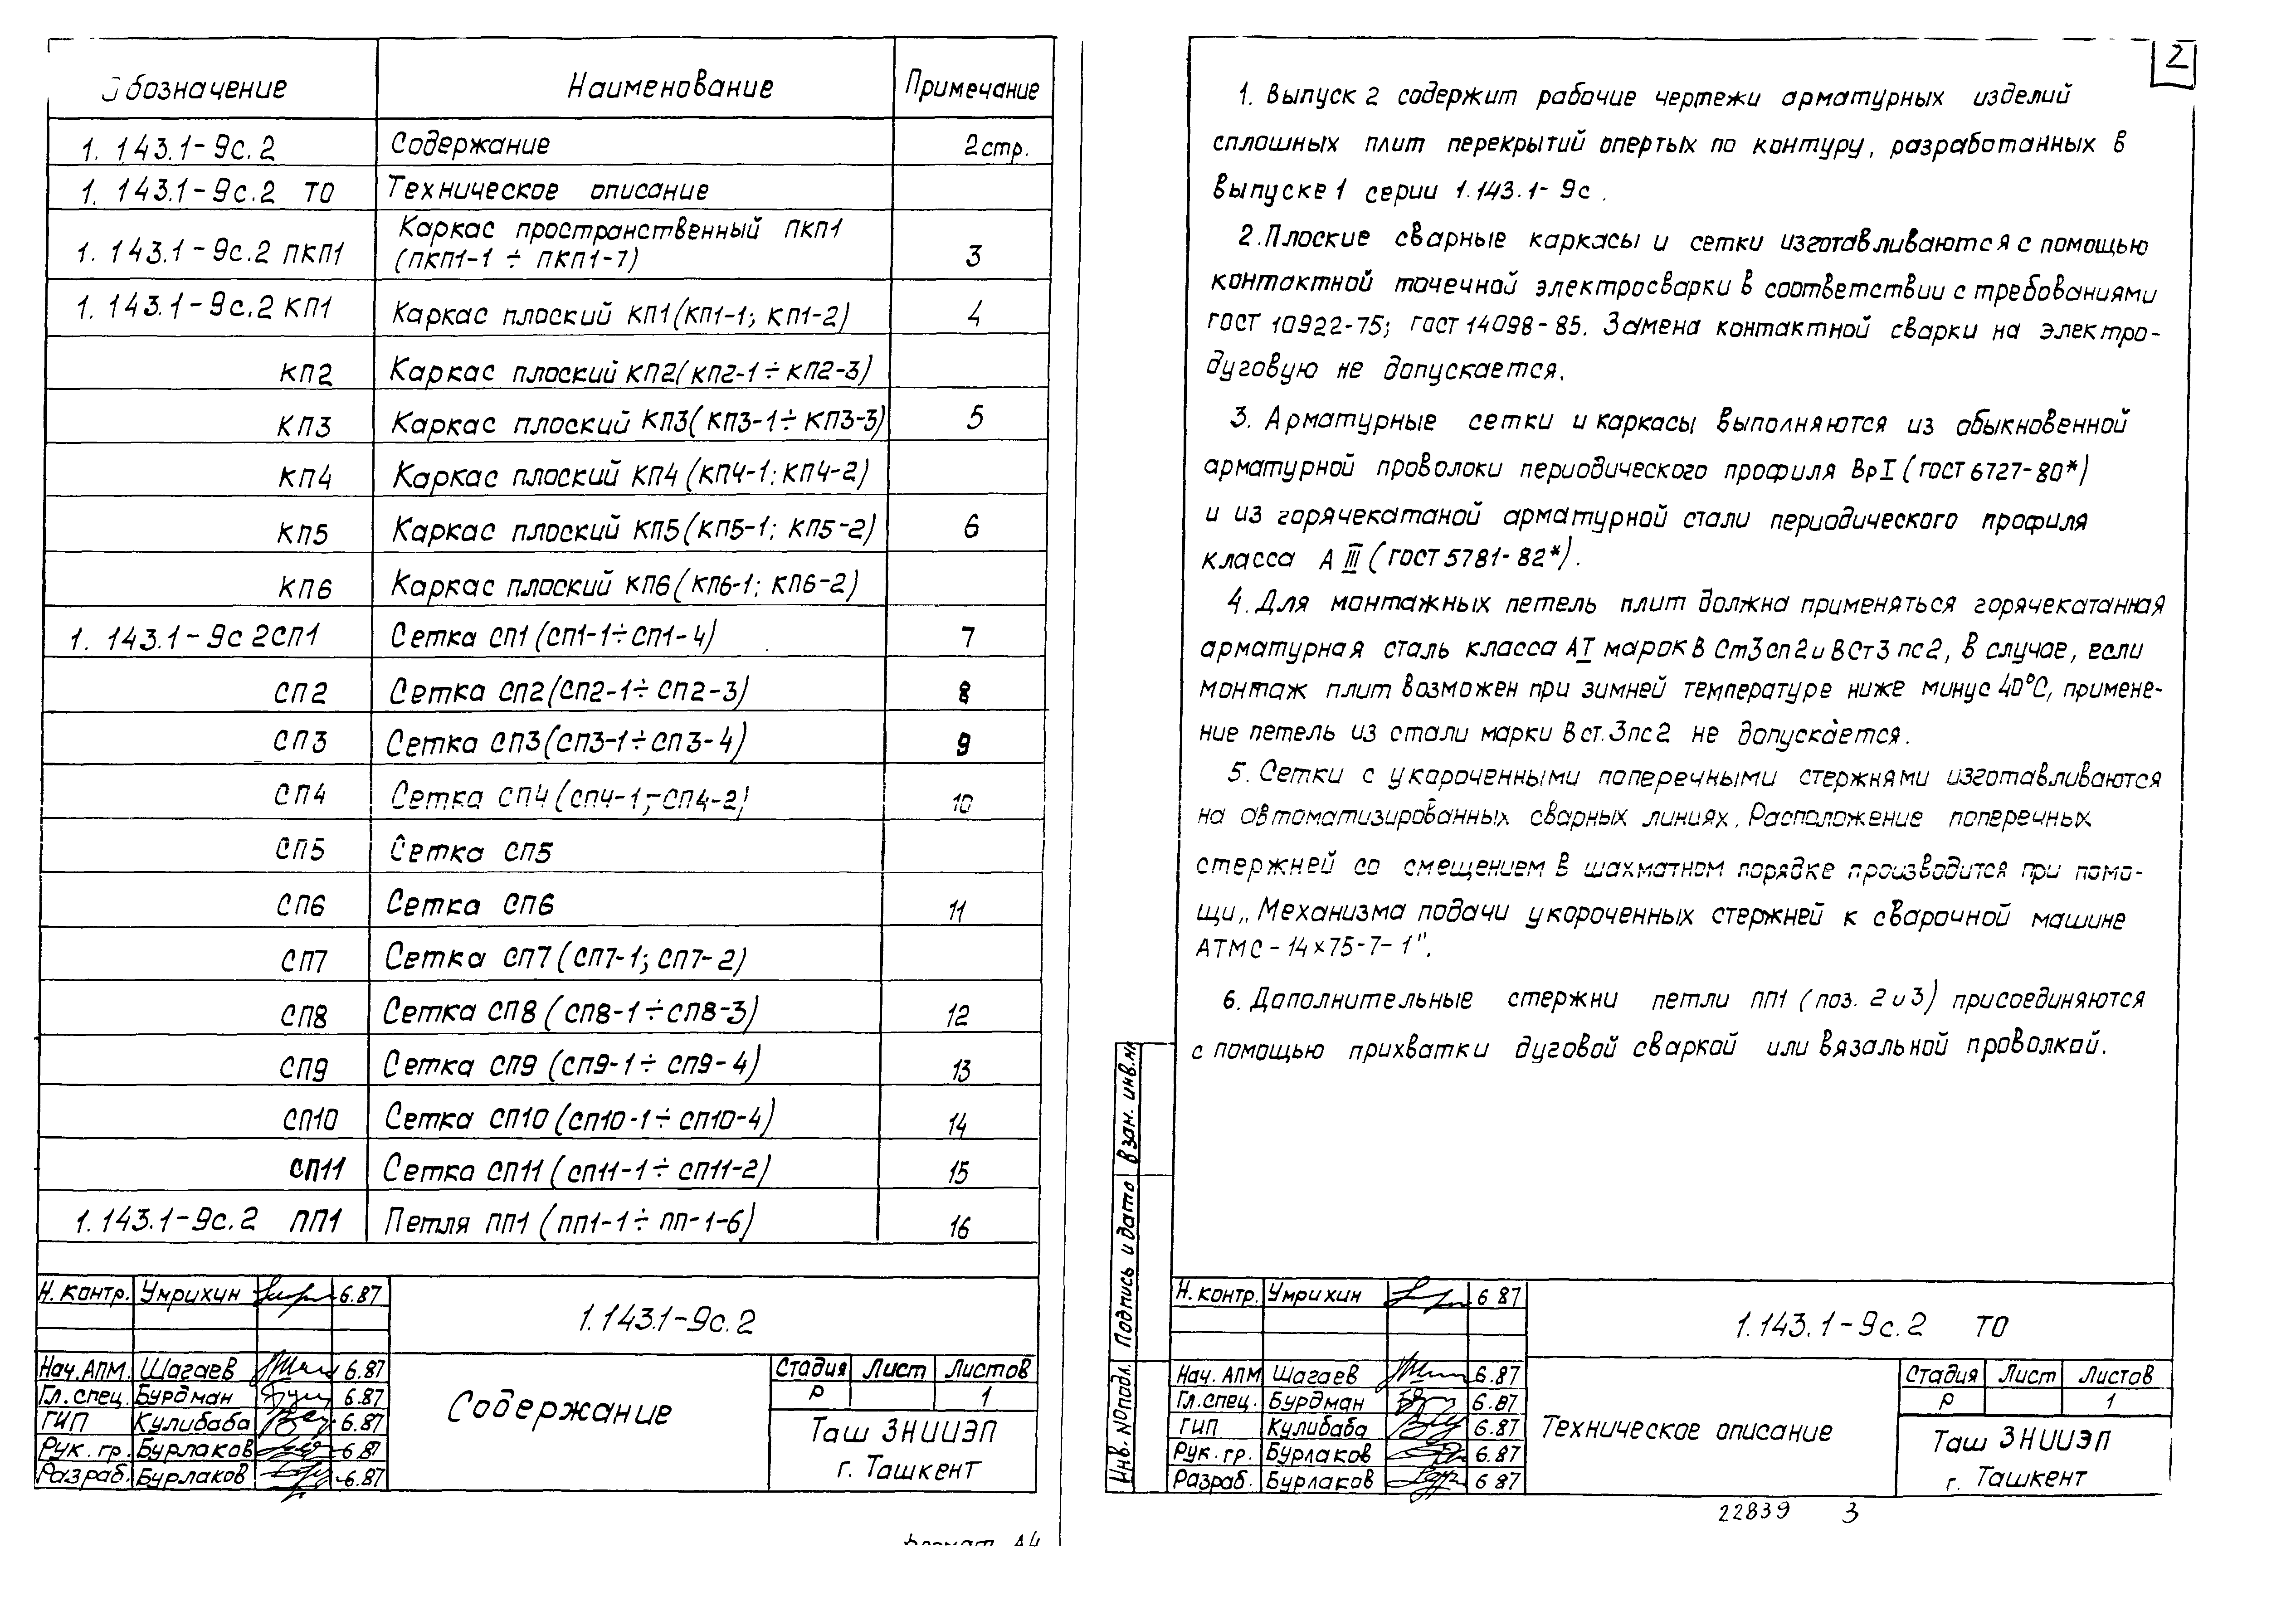 Обозначение Наименование Примечание
1.143.1-9с.2 Содержание 2стр.
1.143.1-9с.2 ТО Техническое описание
1.143.1-9с.2 ПКП1 Каркас пространственный ПКП1
(ПКП1-1 ÷ ПКП1-7) 3
1.143.1-9с.2 КП1 Каркас плоский КП1 (КП1-1; КП1-2) 4
КП2 Каркас плоский КП2 (КП2-1 ÷ КП2-3)
КП3 Каркас плоский КП3 (КП3-1 ÷ КП3-3) 5
КП4 Каркас плоский КП4 (КП4-1; КП4-2)
КП5 Каркас плоский КП5 (КП5-1; КП5-2) 6
КП6 Каркас плоский КП6 (КП6-1; КП6-2)
1.143.1-9с 2СП1 Сетка СП1 (СП1-1 ÷ СП1-4) 7
СП2 Сетка СП2 (СП2-1 ÷ СП2-3) 8
СП3 Сетка СП3 (СП3-1 ÷ СП3-4) 9
СП4 Сетка СП4 (СП4-1; СП4-2) 10
СП5 Сетка СП5
СП6 Сетка СП6 11
СП7 Сетка СП7 (СП7-1; СП7-2)
СП8 Сетка СП8 (СП8-1 ÷ СП8-3) 12
СП9 Сетка СП9 (СП9-1 ÷ СП9-4) 13
СП10 Сетка СП10 (СП10-1 ÷ СП10-4) 14
СП11 Сетка СП11 (СП11-1 ÷ СП11-2) 15
1.143.1-9с.2 ПП1 Петля ПП1 (ПП1-1 ÷ ПП-1-6) 16
Н.контр. Умрихин 6.87
1.143.1-9с.2
Нач.АПМ. Шагаев 6.87
Гл.спец. Бурдман 6.87
ГИП Кулибаба 6.87
Рук.гр. Бурлаков 6.87
Разраб. Бурлаков 6.87
Содержание
Стадия Лист Листов
Р 1
Таш ЗНИИЭП
г. Ташкент
Формат А4
2
1. Выпуск 2 содержит рабочие чертежи арматурных изделий
сплошных плит перекрытий опертых по контуру, разработанных в
выпуске 1 серии 1.143.1-9с.
2. Плоские сварные каркасы и сетки изготавливаются с помощью
контактной точечной электросварки в соответствии с требованиями
ГОСТ 10922-75; ГОСТ 14098-85. Замена контактной сварки на электро-
дуговую не допускается.
3. Арматурные сетки и каркасы выполняются из обыкновенной
арматурной проволоки периодического профиля Вр I (ГОСТ 6727-80*)
и из горячекатаной арматурной стали периодического профиля
класса А III (ГОСТ 5781-82*).
4. Для монтажных петель плит должна применяться горячекатанная
арматурная сталь класса АI марок В Ст3сп2 и ВСт3 пс2, в случае, если
монтаж плит возможен при зимней температуре ниже минус 40°С, примене-
ние петель из стали марки Вст.3пс2 не допускается.
5. Сетки с укороченными поперечными стержнями изготавливаются
на автоматизированных сварных линиях. Расположение поперечных
стержней со смещением в шахматном порядке производится при помо-
щи „Механизма подачи укороченных стержней к сварочной машине
АТМС-14×75-7-1".
6. Дополнительные стержни петли ПП1 (поз. 2 и 3) присоединяются
с помощью прихватки дуговой сваркой или вязальной проволкой.
Взан. инв.№
Подпись и дата
Инв. №подл.
Н.контр. Умрихин 6 87
1.143.1-9с.2 ТО
Нач.АПМ Шагаев 6.87
Гл.спец. Бурдман 6.87
ГИП Кулибаба 6.87
Рук.гр. Бурлаков 6.87
Разраб. Бурлаков 6 87
Техническое описание
Стадия Лист Листов
Р 1
Таш ЗНИИЭП
г. Ташкент
22839 3